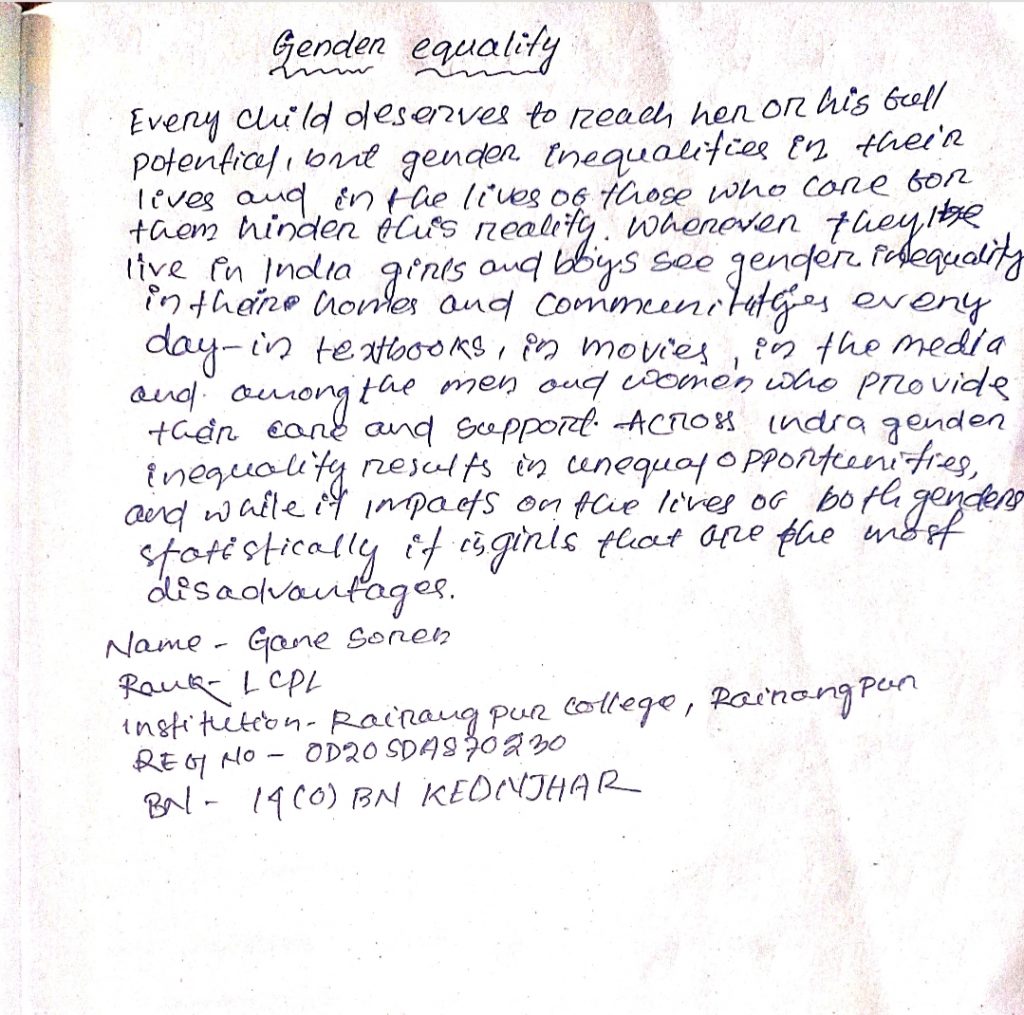 Gender equality
Every child deserves to reach her or his full
potential, but gender inequalities in their
lives and in the lives of those who care for
them hinder this reality. Wherever they
live in India girls and boys see gender inequality
in their homes and communities every
day - in textbooks, in movies, in the media
and among the men and women who provide
their care and support. Across india gender
inequality results in unequal opportunities,
and while it impacts on the lives of both genders
statistically it is girls that are the most
disadvantages.
Name - Gane Soren
Rank - LCPL
institution - Rairangpur college, Rairangpur
REG NO - OD20SDA870230
BN - 14(O) BN KEONJHAR